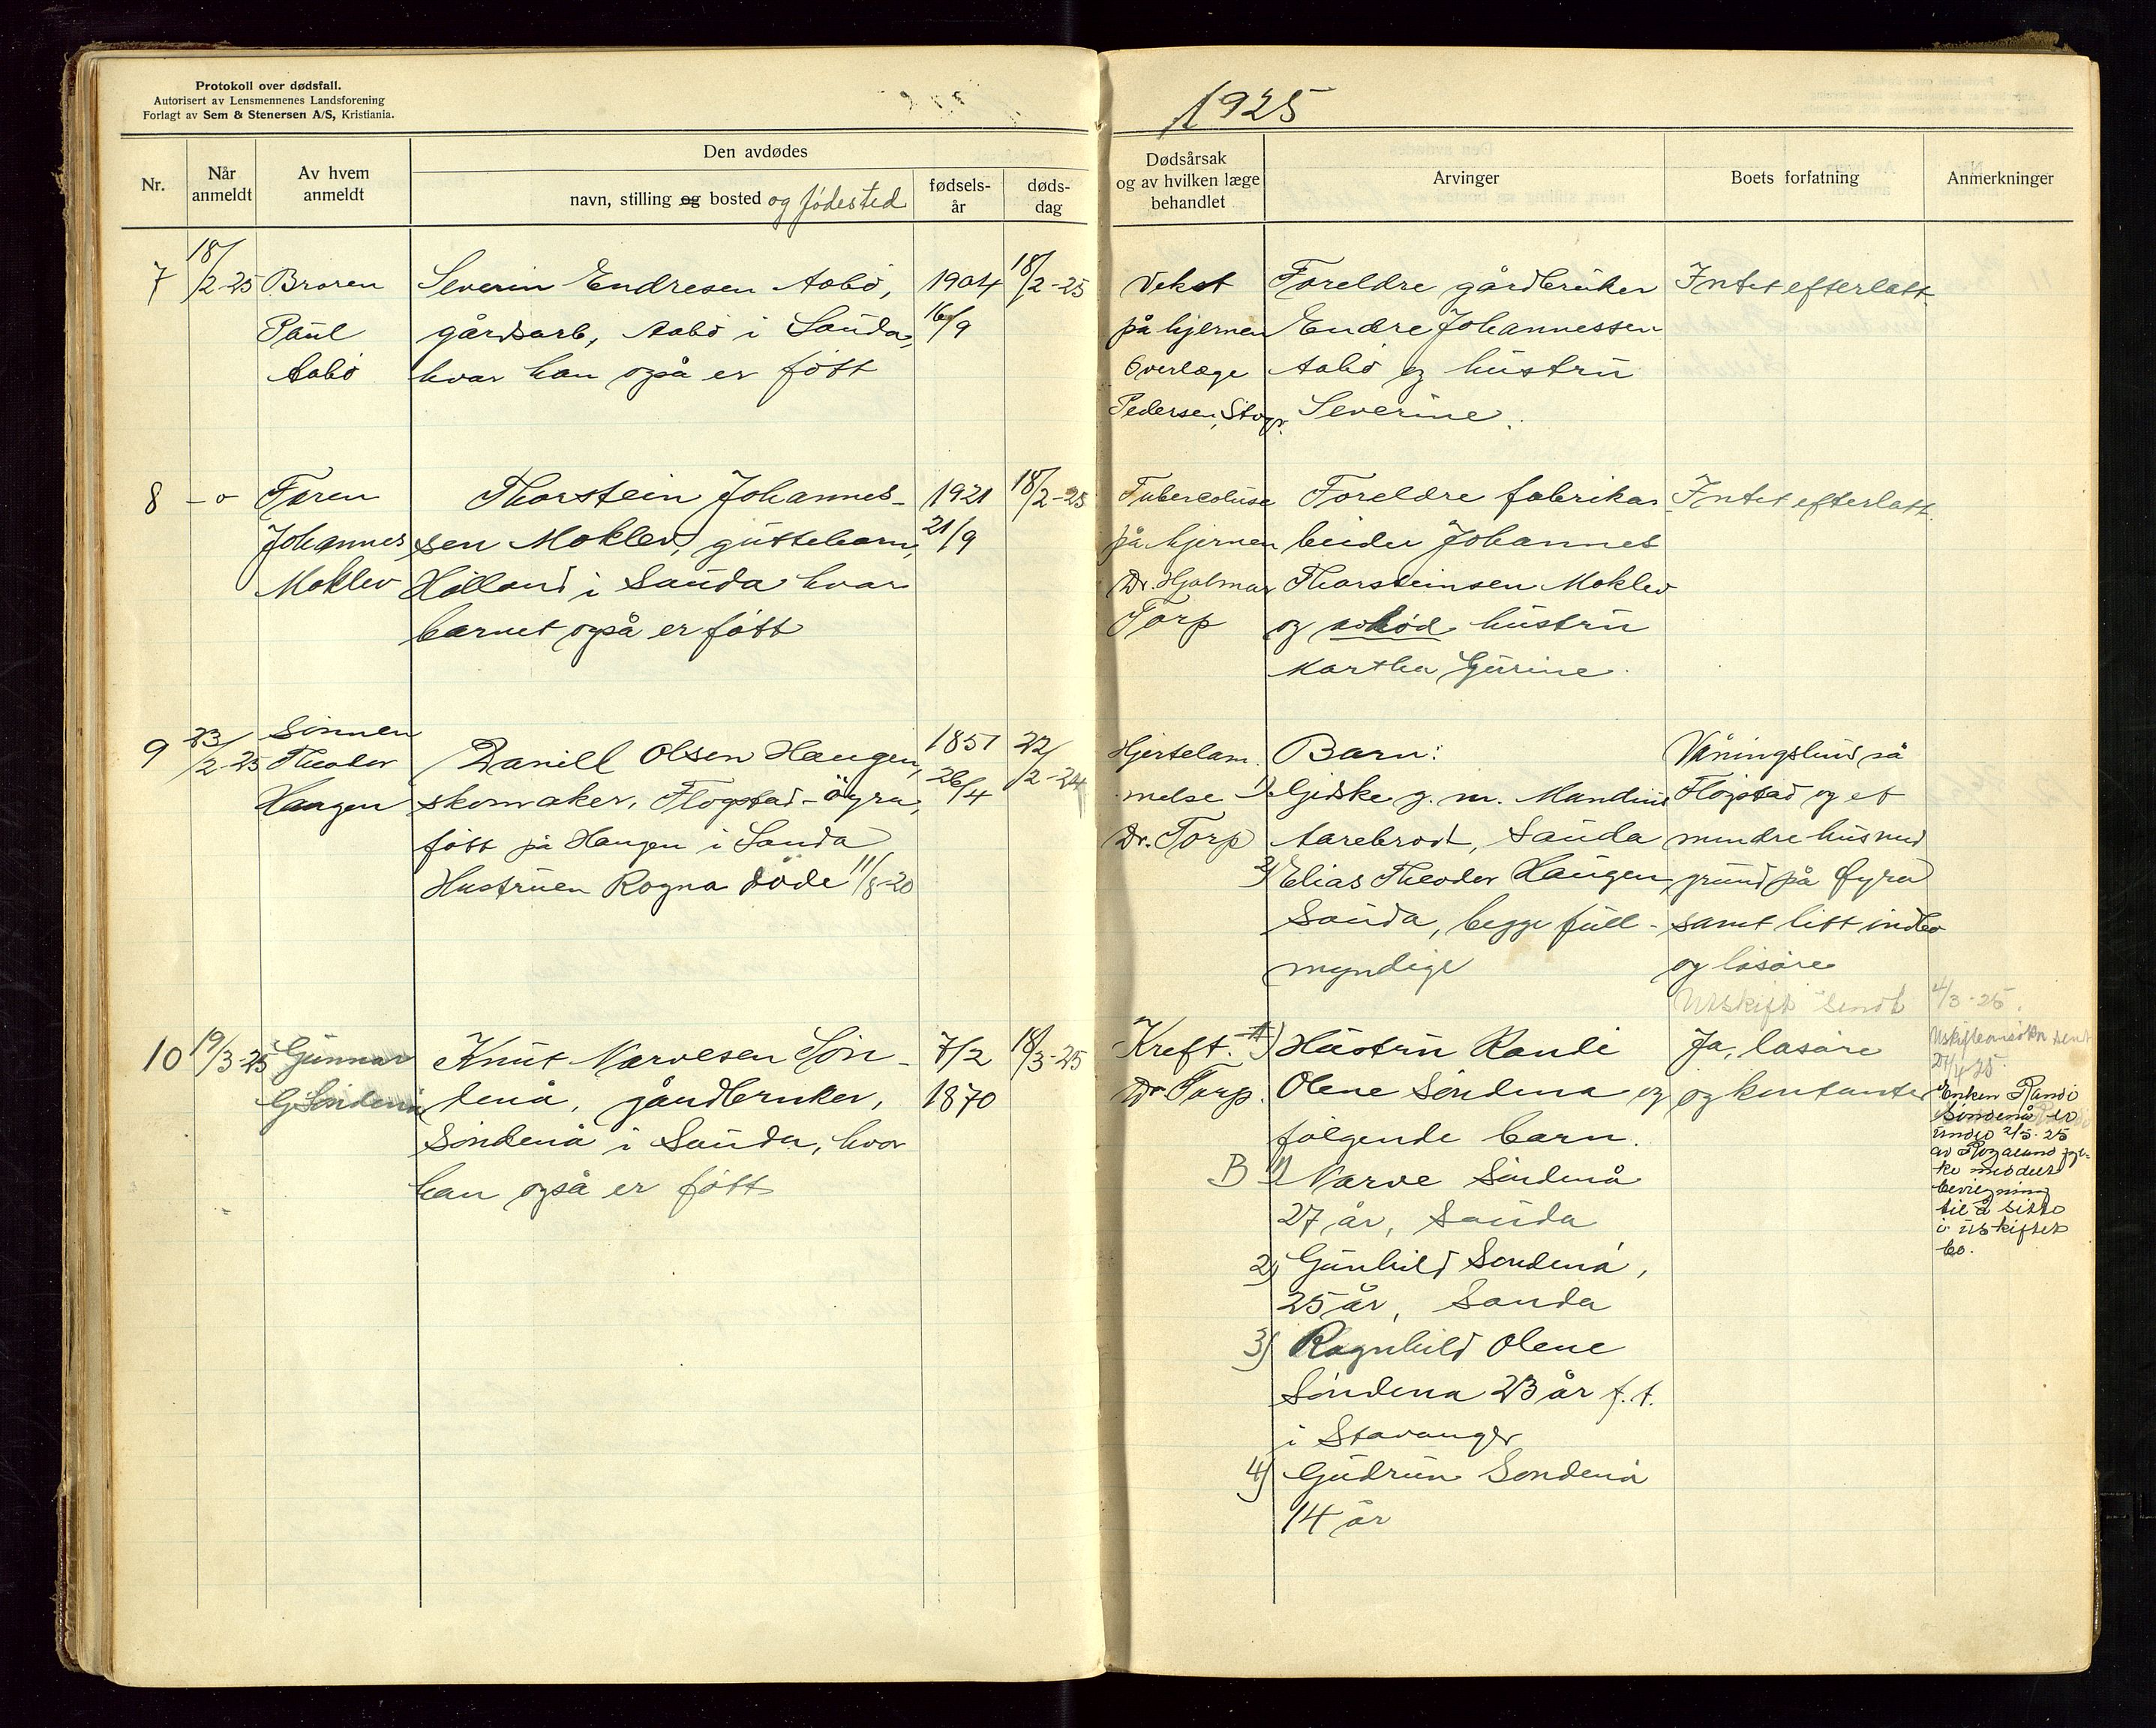 Protokoll over dødsfall.
Autorisert av Lensmennenes Landsforening
Forlagt av Sem & Stenersen A/S, Kristiania.
1925
Nr.
Når anmeldt
Av hvem anmeldt
Den avdødes
navn, stilling og bosted og fødested
fødsels-år
døds-dag
Dødsårsak og av hvilken læge behandlet
Arvinger
Boets forfatning
Anmerkninger
7
18/2-25
Broren
Paul
Aabø
Severin Endresen Aabø,
gårdsarb, Aabø i Sauda,
hvor han også er født
1904
16/9
18/2-25
Vekst
på hjernen
Overlæge
Pedersen, Stvgr.
Foreldre gårdbruker
Endre Johannessen
Aabø og hustru
Severine.
Intet efterlatt
8
-o-
Faren
Johannes
Moklev
Thorstein Johannes-
sen Moklev, guttebarn,
Hølland i Sauda hvor
barnet også er født
1921
21/9
18/2-25
Tuberculose
på hjernen
Dr. Hjalmar
Torp
Foreldre fabrikar-
beider Johannes
Thorsteinsen Moklev
og avdød hustru
Martha Gurine.
Intet efterlatt.
9
23/2-25
Sønnen
Theodor
Haugen
Daniell Olsen Haugen,
skomaker, Fløgstad-Øyra,
født på Haugen i Sauda
Hustruen Ragna døde 11/8-20
1851
26/4
22/2-24
Hjertelam-
melse
Dr. Torp
Barn:
1) Gidske g. m. Mandius
Aarebrot, Sauda
2) Elias Theodor Haugen,
Sauda, begge full-
myndige
Våningshus på
Fløgstad og et
mindre hus med
grund på Øyra
samt litt indbo
og løsøre
Utskift sendt 4/3-25.
10
19/3-25
Gunnar
G. Søndenå
Knut Narvesen Søn-
denå, gårdbruker,
Søndenå i Sauda, hvor
han også er født
7/2
1870
18/3-25
Kreft.
Dr Torp.
A) Hustru Randi
Olene Søndena og
følgende barn.
B 1) Narve Søndenå
27 år, Sauda
2) Gunhild Søndenå,
25 år, Sauda
3) Ragnhild Olene
Søndena 23 år f. t.
i Stavanger
4) Gudrun Søndenå
14 år
Ja, løsøre
og kontanter
sent
Enken Randi
Søndenå er
under 2/5-25
av Rogaland fyl-
ke meddelt
bevilgning
til å sitte
i uskiftet
bo.